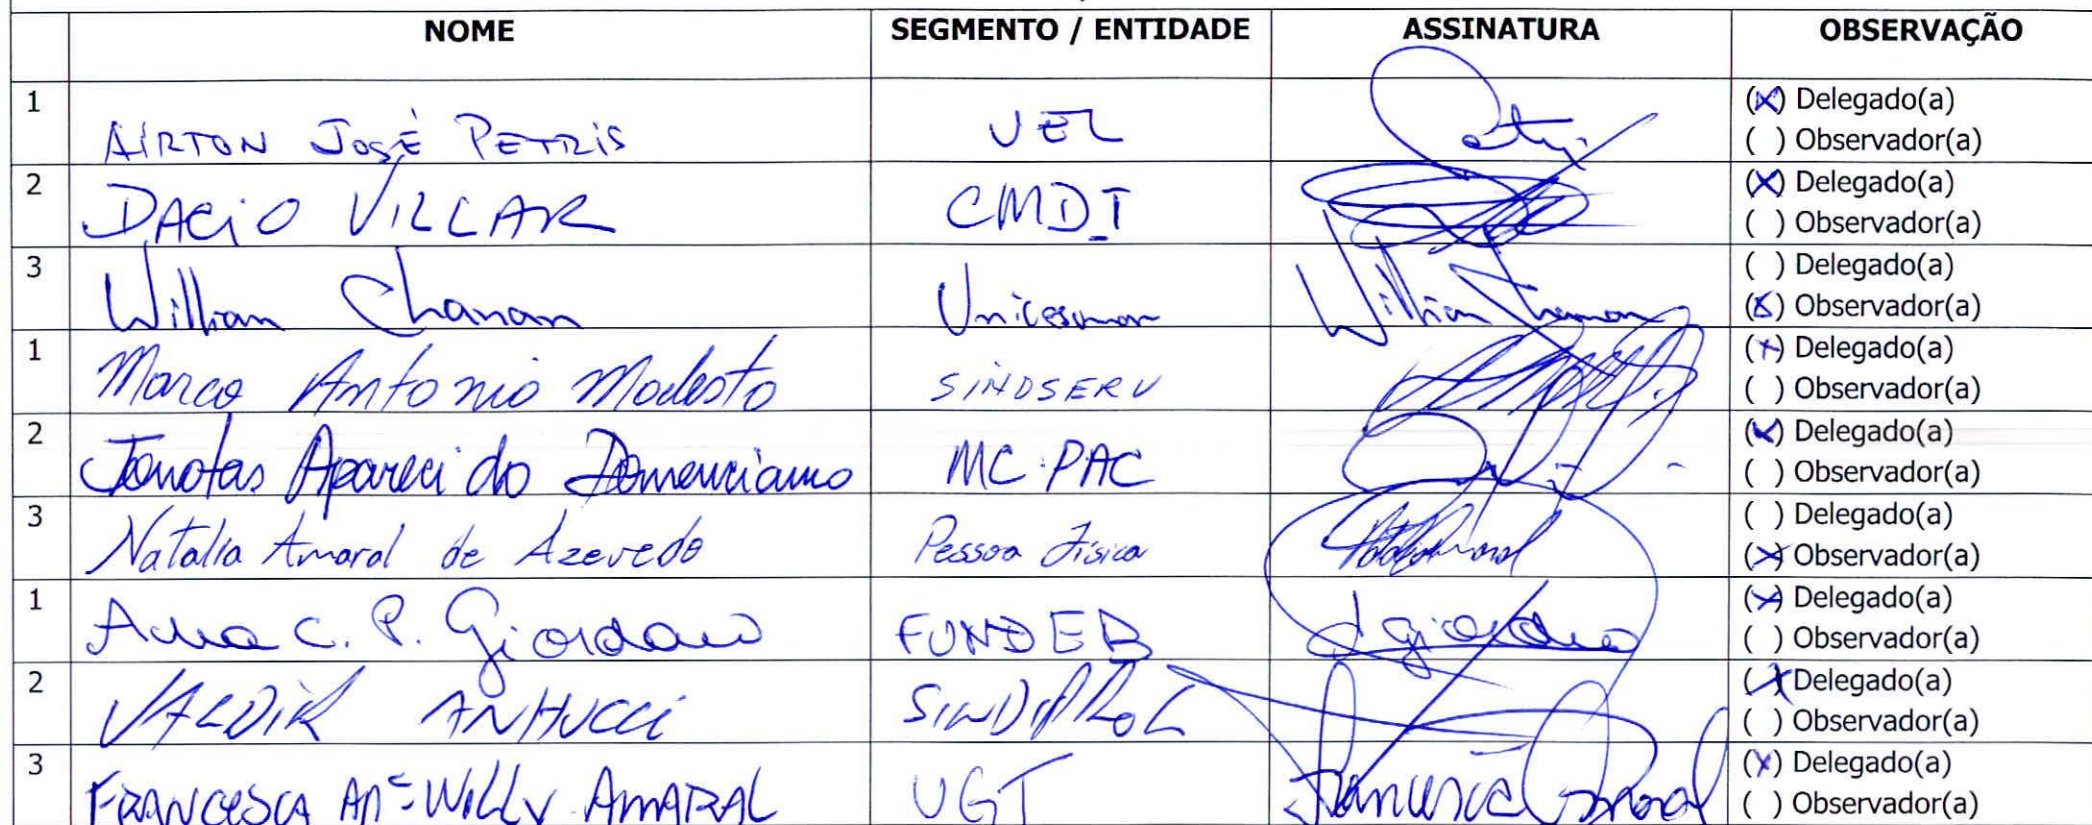 NOME SEGMENTO / ENTIDADE ASSINATURA OBSERVAÇÃO
1 AIRTON JOSÉ PETRIS UEL (X) Delegado(a)
( ) Observador(a)
2 DACIO VILLAR CMDI (X) Delegado(a)
( ) Observador(a)
3 Willian Chanan Unicesumar Willian Chanan ( ) Delegado(a)
(X) Observador(a)
1 Marco Antonio Modesto SINDSERV (X) Delegado(a)
( ) Observador(a)
2 Jonatas Aparecido MC PAC (X) Delegado(a)
( ) Observador(a)
3 Natalia Amaral de Azevedo Pessoa Física ( ) Delegado(a)
(X) Observador(a)
1 Ana C. P. Giordano FUNDEB (X) Delegado(a)
( ) Observador(a)
2 VALDIR SINDIPROL (X) Delegado(a)
( ) Observador(a)
3 FRANCESCA Mª WILLY AMARAL UGT (X) Delegado(a)
( ) Observador(a)